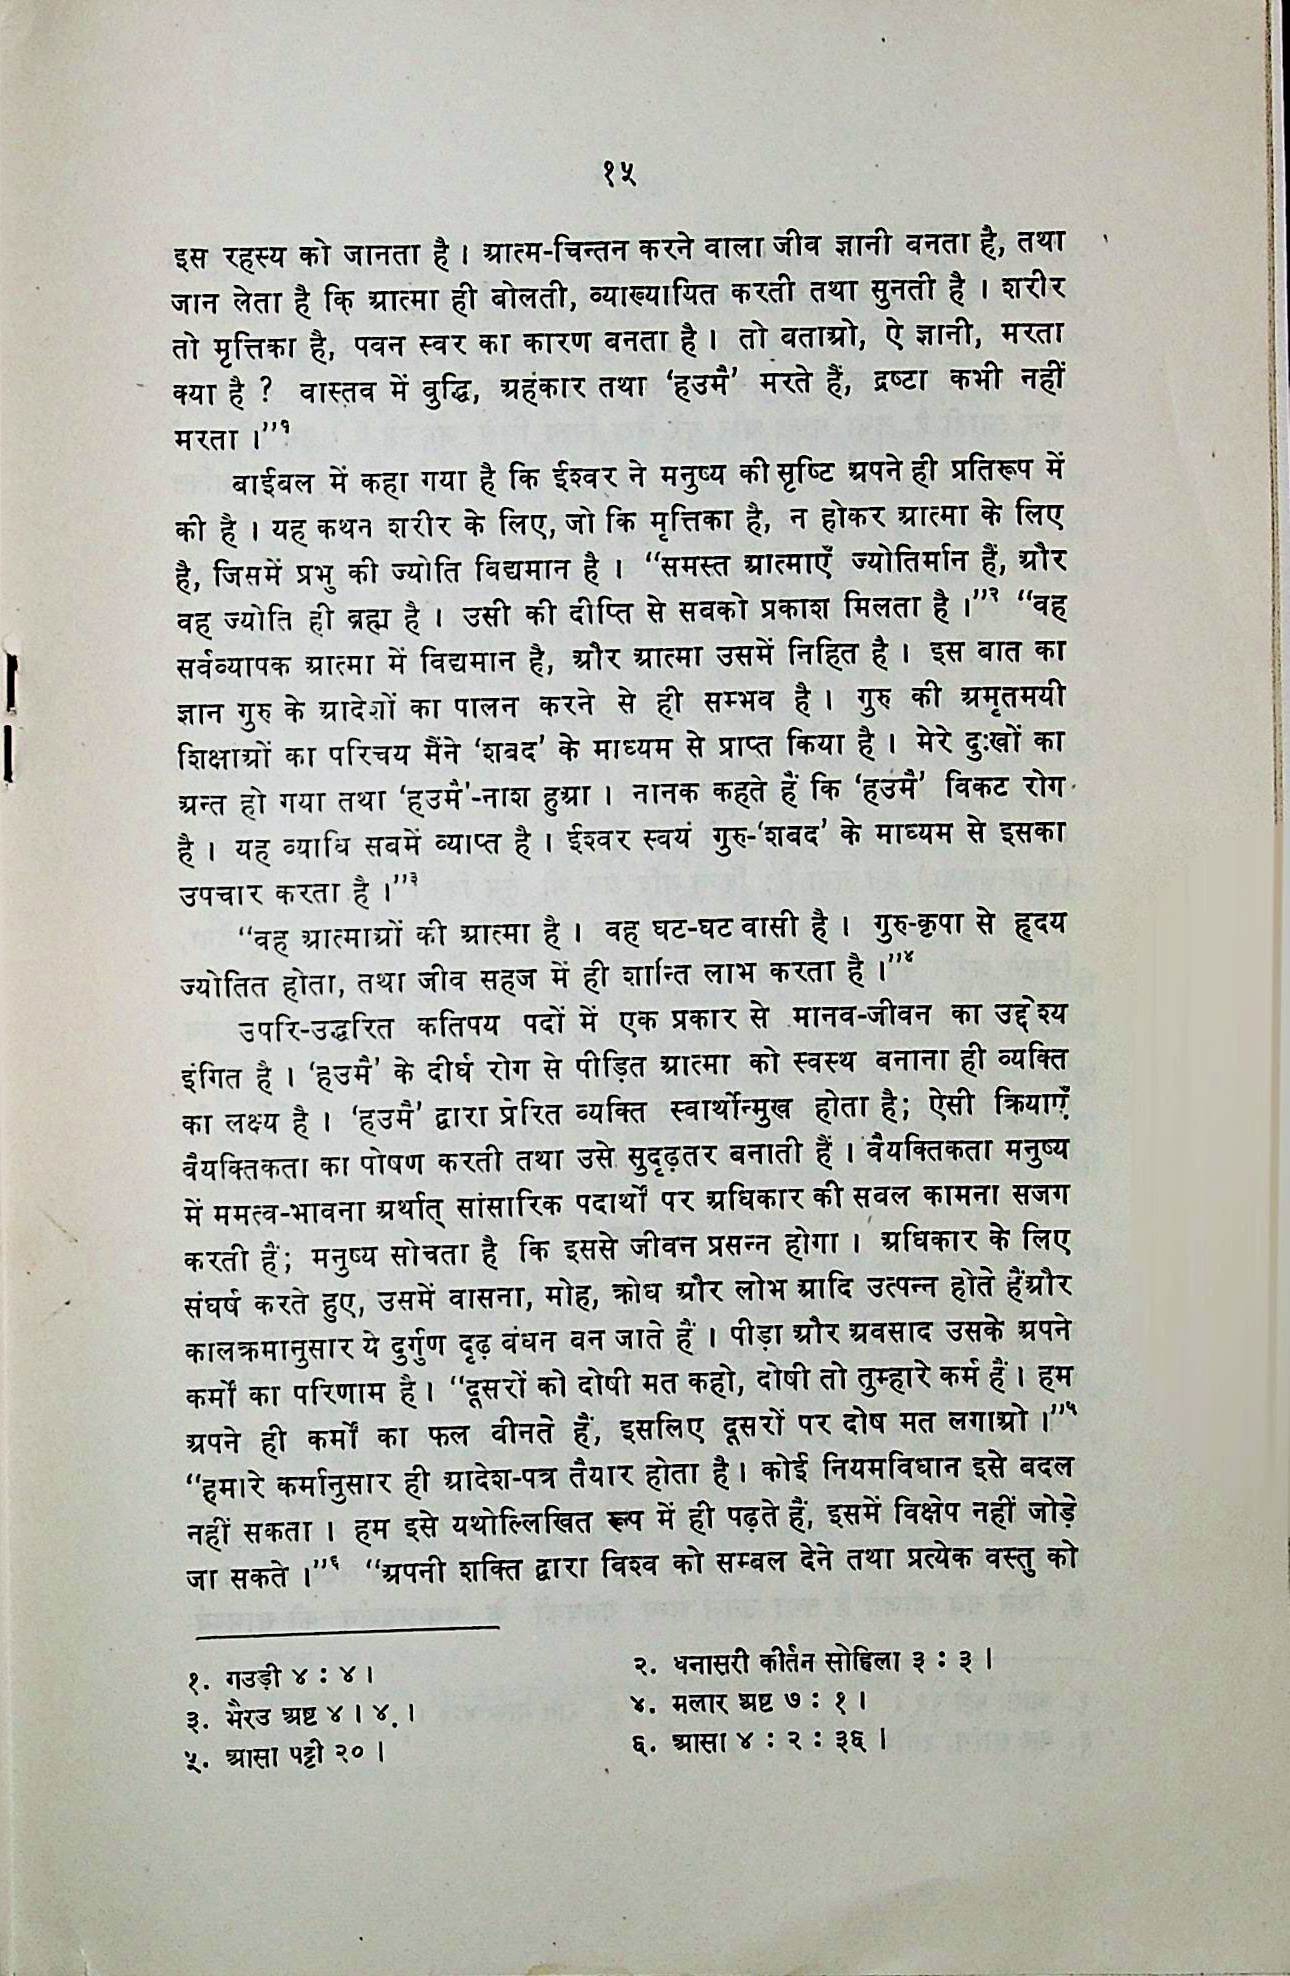 १५
इस रहस्य को जानता है । आत्म-चिन्तन करने वाला जीव ज्ञानी बनता है, तथा
जान लेता है कि आत्मा ही बोलती, व्याख्यायित करती तथा सुनती है । शरीर
तो मृत्तिका है, पवन स्वर का कारण बनता है । तो बताओ, ऐ ज्ञानी, मरता
क्या है ? वास्तव में बुद्धि, अहंकार तथा ‘हउमै’ मरते हैं, द्रष्टा कभी नहीं
मरता ।”१
बाईबल में कहा गया है कि ईश्वर ने मनुष्य की सृष्टि अपने ही प्रतिरूप में
की है । यह कथन शरीर के लिए, जो कि मृत्तिका है, न होकर आत्मा के लिए
है, जिसमें प्रभु की ज्योति विद्यमान है । “समस्त आत्माएँ ज्योतिर्मान हैं, और
वह ज्योति ही ब्रह्म है । उसी की दीप्ति से सबको प्रकाश मिलता है ।”२ “वह
सर्वव्यापक आत्मा में विद्यमान है, और आत्मा उसमें निहित है । इस बात का
ज्ञान गुरु के आदेशों का पालन करने से ही सम्भव है । गुरु की अमृतमयी
शिक्षाओं का परिचय मैंने ‘शबद’ के माध्यम से प्राप्त किया है । मेरे दुःखों का
अन्त हो गया तथा ‘हउमै’-नाश हुआ । नानक कहते हैं कि ‘हउमै’ विकट रोग
है । यह व्याधि सबमें व्याप्त है । ईश्वर स्वयं गुरु-‘शबद’ के माध्यम से इसका
उपचार करता है ।”३
“वह आत्माओं की आत्मा है । वह घट-घट वासी है । गुरु-कृपा से हृदय
ज्योतित होता, तथा जीव सहज में ही शान्ति लाभ करता है ।”४
उपरि-उद्धरित कतिपय पदों में एक प्रकार से मानव-जीवन का उद्देश्य
इंगित है । ‘हउमै’ के दीर्घ रोग से पीड़ित आत्मा को स्वस्थ बनाना ही व्यक्ति
का लक्ष्य है । ‘हउमै’ द्वारा प्रेरित व्यक्ति स्वार्थोन्मुख होता है; ऐसी क्रियाएँ
वैयक्तिकता का पोषण करती तथा उसे सुदृढ़तर बनाती हैं । वैयक्तिकता मनुष्य
में ममत्व-भावना अर्थात् सांसारिक पदार्थों पर अधिकार की सबल कामना सजग
करती हैं; मनुष्य सोचता है कि इससे जीवन प्रसन्न होगा । अधिकार के लिए
संघर्ष करते हुए, उसमें वासना, मोह, क्रोध और लोभ आदि उत्पन्न होते हैंऔर
कालक्रमानुसार ये दुर्गुण दृढ़ बंधन बन जाते हैं । पीड़ा और अवसाद उसके अपने
कर्मों का परिणाम है । “दूसरों को दोषी मत कहो, दोषी तो तुम्हारे कर्म हैं । हम
अपने ही कर्मों का फल बीनते हैं, इसलिए दूसरों पर दोष मत लगाओ ।”५
“हमारे कर्मानुसार ही आदेश-पत्र तैयार होता है । कोई नियमविधान इसे बदल
नहीं सकता । हम इसे यथोल्लिखित रूप में ही पढ़ते हैं, इसमें विक्षेप नहीं जोड़े
जा सकते ।”६ “अपनी शक्ति द्वारा विश्व को सम्बल देने तथा प्रत्येक वस्तु को
१. गउड़ी ४ : ४ । २. धनासरी कीर्तन सोहिला ३ : ३ ।
३. भैरउ अष्ट ४ । ४ । ४. मलार अष्ट ७ : १ ।
५. आसा पट्टी २० । ६. आसा ४ : २ : ३६ ।